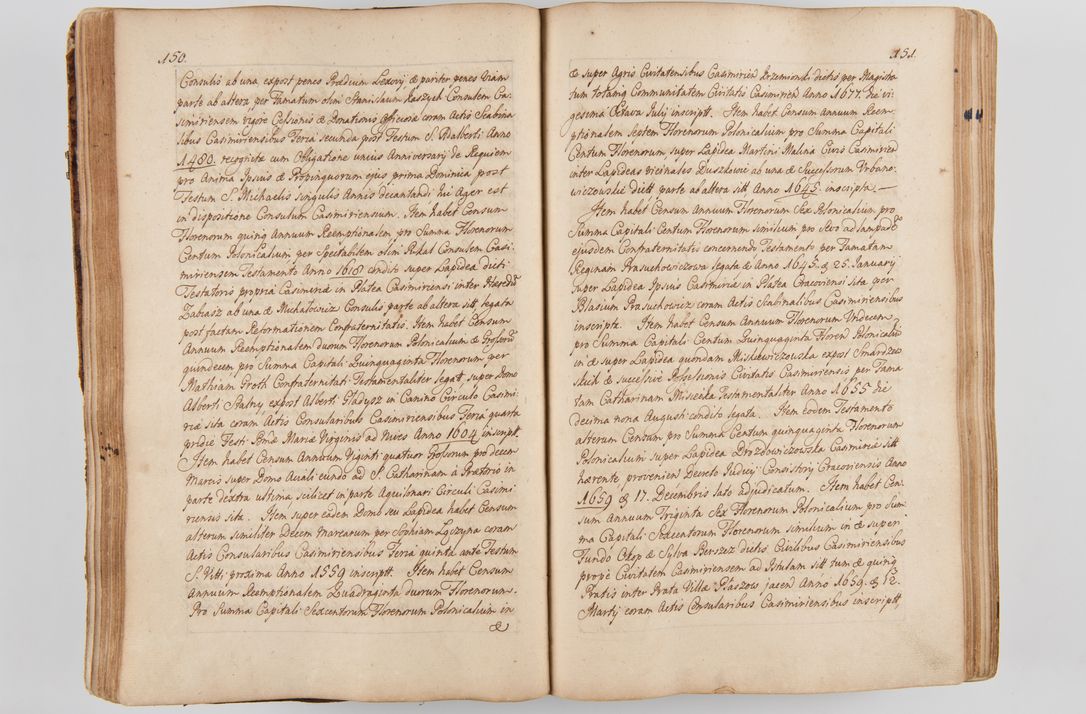 150.
Consulis ab una expost penes Prædium Lexovij & pariter penes Viam
parte ab altera, per Famatum olim Stanislaum Kaszyck Consulem Ca-
simiriensem vigore Cessionis & Donationis Officiosæ coram Actis Scabina
libus Casimiriensibus Feria secunda post Festum S. Adalberti Anno
1480. recognitæ cum Obligatione unius Anniversarij de Requiem
pro Anima Ipsius & Propinquorum ejus prima Dominica post
Festum S. Michaelis singulis Annis decantandi, hic Ager est
in dispositione Consulum Casimiriensium. Item habet Censum
Florenorum quinq Annuum Reemptionalem pro Summa Florenorum
Centum Polonicalium per Spectabilem olim Rekal Consulem Casi-
miriensem Testamento Anno 1618 condito super Lapidea dicti
Testatoris propria Casimiriæ in Platea Casimiriensi inter
Zabiasz ab una & Michałowicz Consulis parte ab altera sitt legatu
post factam Reformationem Confraternitatis. Item habet Censum
Annuum Reemptionalem duorum Florenorum Polonicalium & Grossorũ
quindecem pro Summa Capitali Quinquaginta Florenorum, per
Mathiam Groth Confraternitati Testamentaliter legat, super Domo
Alberti Stalny, expost Albert. Gładysz in Camino Circulo Casimi-
riæ sita coram Actis Consularibus Casimiriensibus Feria quarta
pridie Festi Bmæ Mariæ Virginis ad Nives Anno 1604 inscript.
Item habet Censum Annuum Viginti quatuor Grossorum pro decem
Marcis super Domo Acuali eundo ad S. Catharinam à Prætorio in
parte dextra ultima scilicet in parte Aquilonari Circuli Casimi
riensis sita. Item super eadem Domo seu Lapidea habet Censum
alterum similiter Decem marcarum per Sophiam Łojzyna coram
Actis Consularibus Casimiriensibus Feria quinta ante Festum
S. Viti proxima Anno 1559 inscriptt. Item habet Censum
Annuum Reemptionalem Quadraginta duorum Florenorum.
Pro Summa Capitali Sexcentorum Florenorum Polonicalium in
&
151.
& super Agris Civitatensibus Casimiriæ Krzemionki dictis per Magistra
tum totamq Communitatem Civitatis Casimiriæ Anno 1677. die vi-
gesima Octava Julij inscript. Item habet Censum Annuum Reem-
ptionalem Septem Florenorum Polonicalium pro Summa Capitali
Centum Florenorum, super Lapidea Martini Malina Civis Casimiriæ
inter Lapideas vicinales Duszkowic ab una & Successorum Urbano-
wiczowskie dictt parte ab altera sitt Anno 1645. inscripta.
Item habet Censum Annuum Florenorum Sex Polonicalium pro
Summa Capitali Centum Florenorum similium pro sevo ad lampadẽ
ejusdem Confraternitatis concernendo Testamento per Famatam
Reginam Prasuchowiczowa legata de Anno 1645. & 25. January
super Lapidea Ipsius Casimiriæ in Platea Cracoviensi sita per
Blasium Prasuchowicz coram Actis Scabinalibus Casimiriensibus
inscripta. Item habet Censum Annuum Florenorum Undecem
pro Summa Capitali Centum Quinquaginta Floren Polonicaliũ
in & super Lapidea quondam Miskowiczowska expost Smardzew
skich & successivè Possessionis Civitatis Casimiriensis per Fama
tam Catharinam Misiecka Testamentaliter Anno 1655 die
decima nona Augusti condito legata. Item eodem Testamento
alterum Censum pro Summa Centum quinquaginta Florenorum
Polonicalium super Lapidea Drozdowiczowska Casimiriæ sitt
hærente provenien Decreto Judicij Consistorij Cracoviensis Anno
1659 & 17. Decembris lato adjudicatum. Item habet Cen-
sum Annuum Triginta Sex Florenorum Polonicalium pro Sum
ma Capitali Sexcentorum Florenorum similium in & super
Fundo Okop & Sylva Berszez dictis Civilibus Casimiriensibus
propè Civitatem Casimiriensem ad Istulam sitt tum & quinq
Pratis inter Prata Villæ Płaszow jacen Anno 1659. & 12.
Martij coram Actis Consularibus Casimiriensibus inscriptt,